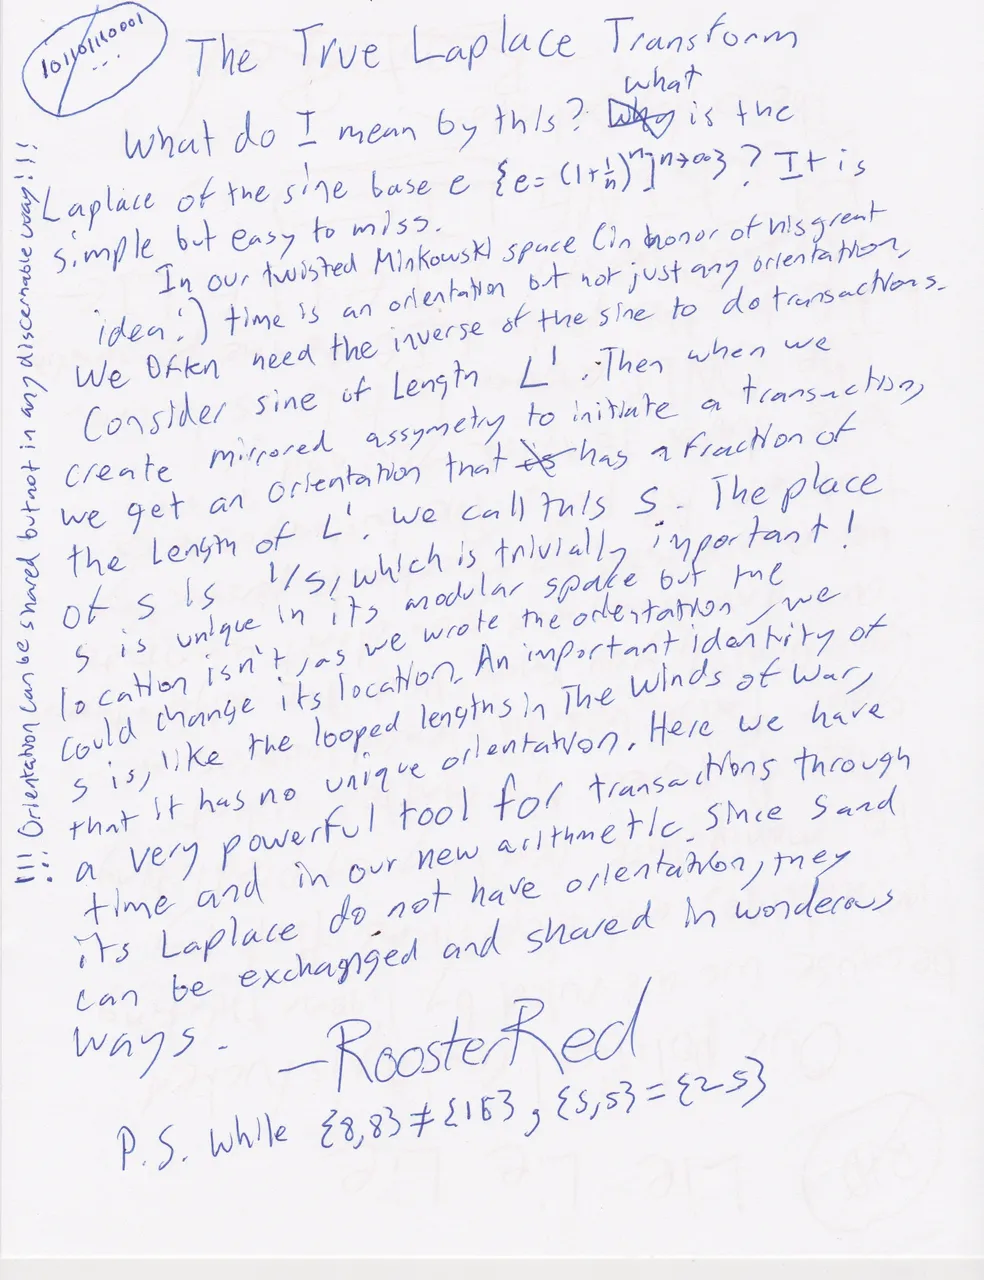 101101110001
...
The True Laplace Transform
What do I mean by this? what is the
Laplace of the sine base e {e= (1+1/n)^n]^n→∞} ? It is
simple but easy to miss.
In our twisted Minkowski space (in honor of his great
idea!) time is an orientation but not just any orientation,
We Often need the inverse of the sine to do transactions.
Consider sine of Length L'. Then when we
create mirrored assymetry to initiate a transaction,
we get an orientation that has a fraction of
the Length of L'. We call this S. The place
of s is 1/s, which is trivially important!
s is unique in its modular space but the
location isn't, as we wrote the orientation, we
could change its location. An important identity of
s is, like the looped lengths in The Winds of War,
that it has no unique orientation. Here we have
a very powerful tool for transactions through
time and in our new arithmetic. Since s and
its Laplace do not have orientation, they
can be exchanged and shared in wonderous
ways.
—RoosterRed
P.S. while {8,8} ≠ {16}, {s,s} = {2s}
!!! Orientation can be shared but not in any discernable way!!!